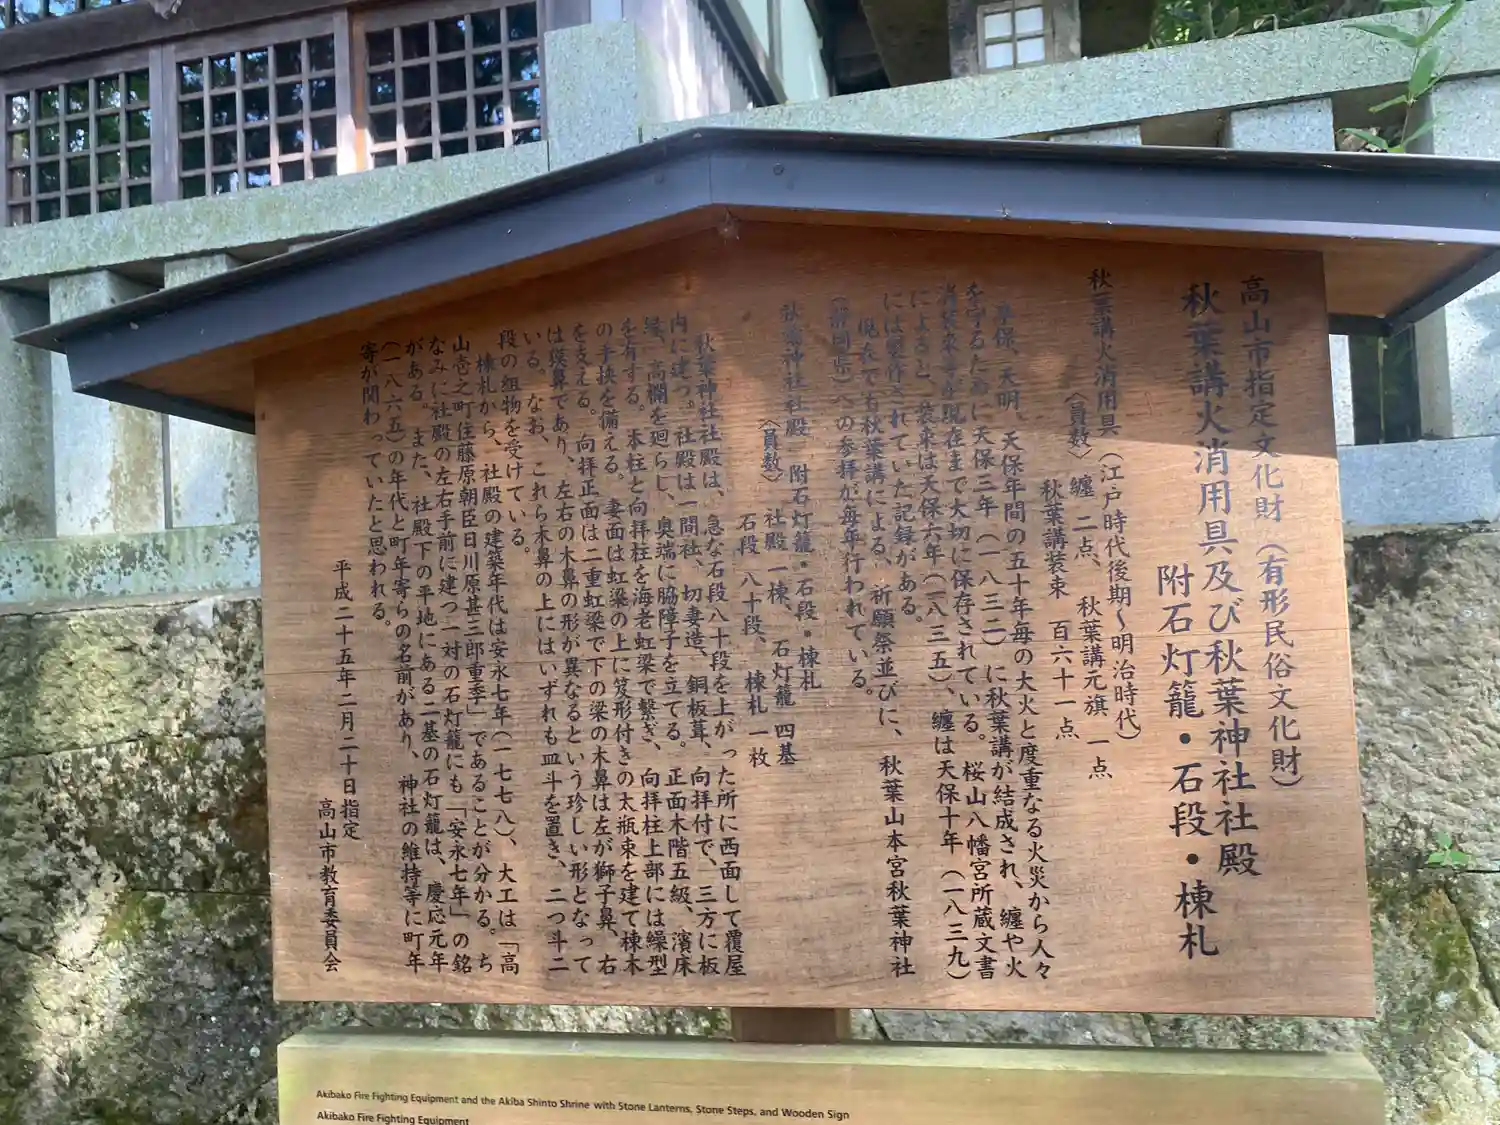 高山市指定文化財（有形民俗文化財）
秋葉講火消用具及び秋葉神社社殿
附石灯籠・石段・棟札
秋葉講火消用具（江戸時代後期～明治時代）
〈員数〉 纏 二点、 秋葉講元旗 一点
秋葉講装束 百六十一点
享保、天明、天保年間の五十年毎の大火と度重なる火災から人々
を守るために天保三年（一八三二）に秋葉講が結成され、纏や火
消装束等が現在まで大切に保存されている。桜山八幡宮所蔵文書
によると、装束は天保六年（一八三五）、纏は天保十年（一八三九）
には製作されていた記録がある。
現在でも秋葉講による、祈願祭並びに、秋葉山本宮秋葉神社
（静岡県）への参拝が毎年行われている。
秋葉神社社殿 附石灯籠・石段・棟札
〈員数〉 社殿 一棟、 石灯籠 四基
石段 八十段、 棟札 一枚
秋葉神社社殿は、急な石段八十段を上がった所に西面して覆屋
内に建つ。社殿は一間社、切妻造、銅板葺、向拝付で、三方に板
縁、高欄を廻らし、奥端に脇障子を立てる。正面木階五級、濱床
を有する。本柱と向拝柱を海老虹梁で繋ぎ、向拝柱上部には繰型
の手挟を備える。妻面は虹梁の上に笈形付きの太瓶束を建て棟木
を支える。向拝正面は二重虹梁で下の梁の木鼻は左が獅子鼻、右
は獏鼻であり、左右の木鼻の形が異なるという珍しい形となって
いる。なお、これら木鼻の上にはいずれも皿斗を置き、二つ斗二
段の組物を受けている。
棟札から、社殿の建築年代は安永七年（一七七八）、大工は「高
山壱之町住藤原朝臣日川原甚三郎重季」であることが分かる。ち
なみに社殿の左右手前に建つ一対の石灯籠にも「安永七年」の銘
がある。また、社殿下の平地にある二基の石灯籠は、慶応元年
（一八六五）の年代と町年寄らの名前があり、神社の維持等に町年
寄が関わっていたと思われる。
平成二十五年二月二十日指定
高山市教育委員会
Akibako Fire Fighting Equipment and the Akiba Shinto Shrine with Stone Lanterns, Stone Steps, and Wooden Sign
Akibako Fire Fighting Equipment